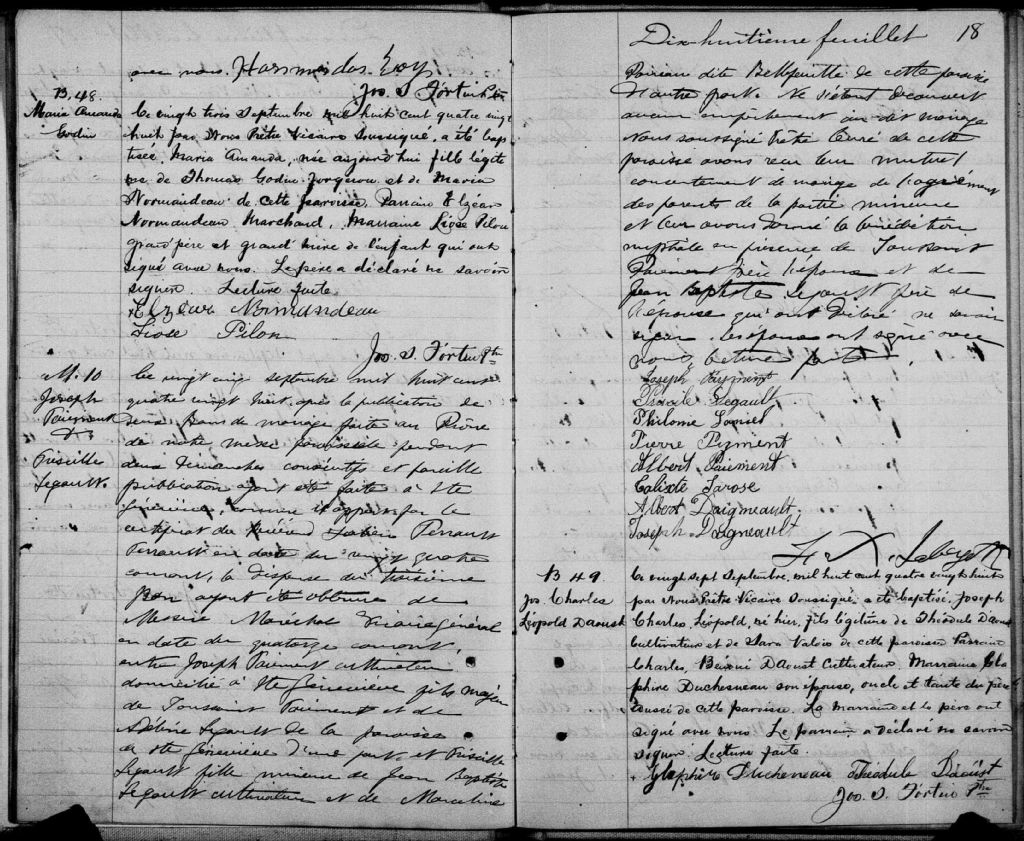 avec nous. Hormisdas Roy
Jos. S. Fortin Ptre
B. 48.
Maria Amanda
Godin
Le vingt trois Septembre mil huit cent quatre vingt
huit par Nous Prêtre Vicaire Soussigné, a été bap
tisée, Maria Amanda, née aujourd'hui fille légiti
me de Thomas Godin Forgeron et de Maria
Normandeau de cette paroisse. Parrain Elzéar
Normandeau Marchand, Marraine Liose Pilon
grand père et grand mère de l'enfant qui ont
signé avec nous. Le père a déclaré ne savoir
signer. Lecture faite.
Elzéar Normandeau
Liose Pilon
Jos. S. Fortin Ptre
M. 10
Joseph
Paiement
&
Priscille
Legault.
Le vingt cinq septembre mil huit cent
quatre vingt huit, après la publication de
deux Bans de mariage faite au Prône
de notre messe paroissiale pendant
deux dimanches consécutifs et pareille
publication ayant été faite à Ste
Geneviève, comme il appert par le
certificat du Révérend Perrault
Perrault en date du vingt quatre
courant, la dispense du troisième
Ban ayant été obtenue de
Messire Maréchal Vicaire Général
en date du quatorze courant,
entre Joseph Paiement cultivateur
domicilié à Ste Geneviève fils majeur
de Toussaint Paiement et de
Legault de la paroisse
de Ste Geneviève d'une part, et Priscille
Legault fille mineure de Jean Baptiste
Legault cultivateur et de Marceline
Dix-huitième feuillet 18
Poirier dite Bellefeuille de cette paroisse
d'autre part. Ne s'étant découvert
aucun empêchement au dit mariage
Nous soussigné Prêtre Curé de cette
paroisse avons reçu leur mutuel
consentement de mariage de l'agrément
des parents de la partie mineure
et leur avons donné la bénédiction
nuptiale en présence de Toussaint
Paiement père de l'époux et de
Jean Baptiste Legault père de
l'épouse qui ont déclaré ne savoir
signer. les époux ont signé avec
nous lecture faite
Joseph Payment
Legault
Philomie
Pierre Pyment
Albert Paiement
Calixte Larose
Albert Daigneault
Joseph Daigneault
F. X.
B 49.
Jos. Charles
Léopold Daoust
Le vingt sept Septembre, mil huit cent quatre vingt huit
par Nous Prêtre Vicaire Soussigné, a été baptisé, Joseph
Charles, Léopold, né hier, fils légitime de Théodule Daoust
Cultivateur et de Sara Valois de cette paroisse. Parrain
Charles, Daoust Cultivateur, Marraine Gla
phire Duchesneau son épouse, oncle et tante du père
aussi de cette paroisse. La marraine et le père ont
signé avec nous. Le parrain a déclaré ne savoir
signer. Lecture faite.
Glaphire Ducheneau Théodule Daoust
Jos. S. Fortin Ptre